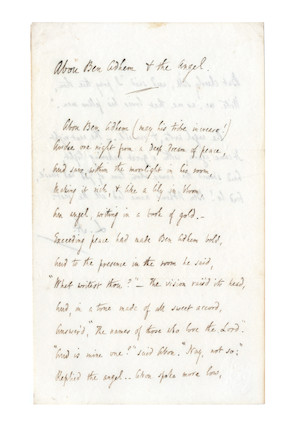 Abou Ben Adhem & the Angel.
Abou Ben Adhem (may his tribe increase!)
Awoke one night from a deep dream of peace,
And saw, within the moonlight in his room
Making it rich, & like a lily in bloom
An angel, writing in a book of gold.—
Exceeding peace had made Ben Adhem bold,
And to the presence in the room he said,
"What writest thou?" — The vision rais'd its head,
And, in a tone made of all sweet accord,
Answer'd, "The names of those who love the Lord".
"And is mine one?" said Abou. "Nay, not so;"
Replied the angel.. Abou spoke more low,